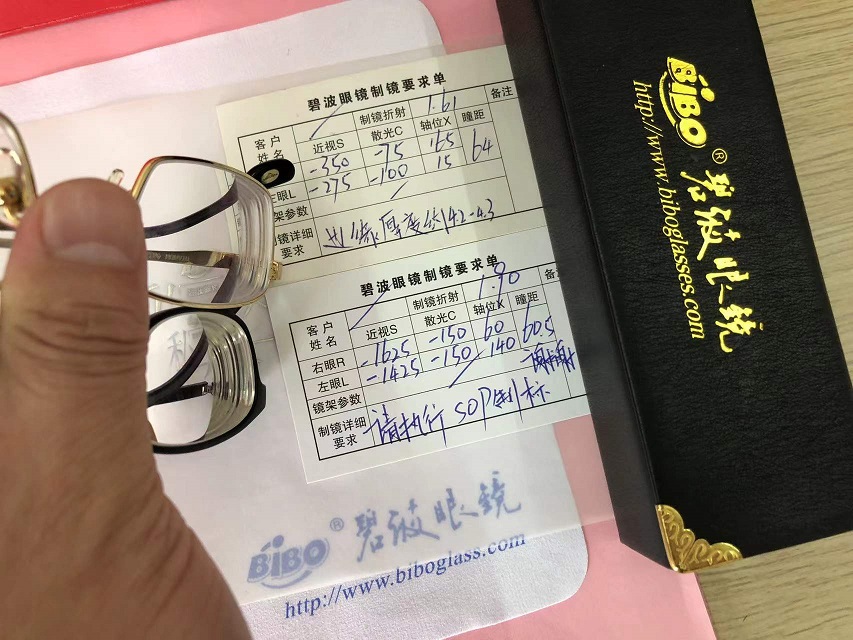 碧波眼镜制镜要求单
制镜折射 1.61 备注
客户姓名 近视S 散光C 轴位X 瞳距
-350 -75 165 64
左眼L -275 -100 15
架参数
制镜详细要求 边缘厚度约4.2-4.3
碧波眼镜制镜要求单
制镜折射 1.90 备
客户姓名 近视S 散光C 轴位X 瞳距
右眼R -1625 -150 60 605
左眼L -1425 -150 140 谢谢
镜架参数
制镜详细要求 请执行SOP制标
BiBO ® 碧波眼镜
http://www.biboglass.com
BiBO ® 碧波眼镜
http://www.biboglasses.com